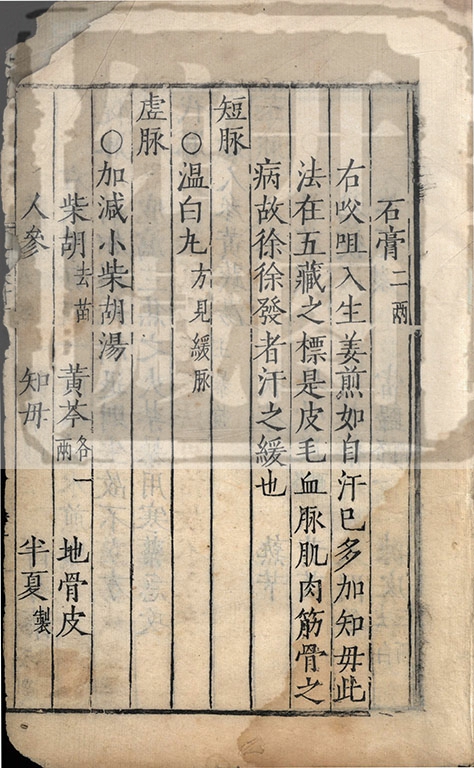 石膏二兩
右㕮咀入生姜煎如自汗巳多加知毋此
法在五藏之標是皮毛血脉肌肉筋骨之
病故徐徐發者汗之緩也
短脉
○温白丸方見緩脉
虛脉
○加減小柴胡湯
柴胡去苗 黃芩各一兩 地骨皮
人參 知毋 半夏製